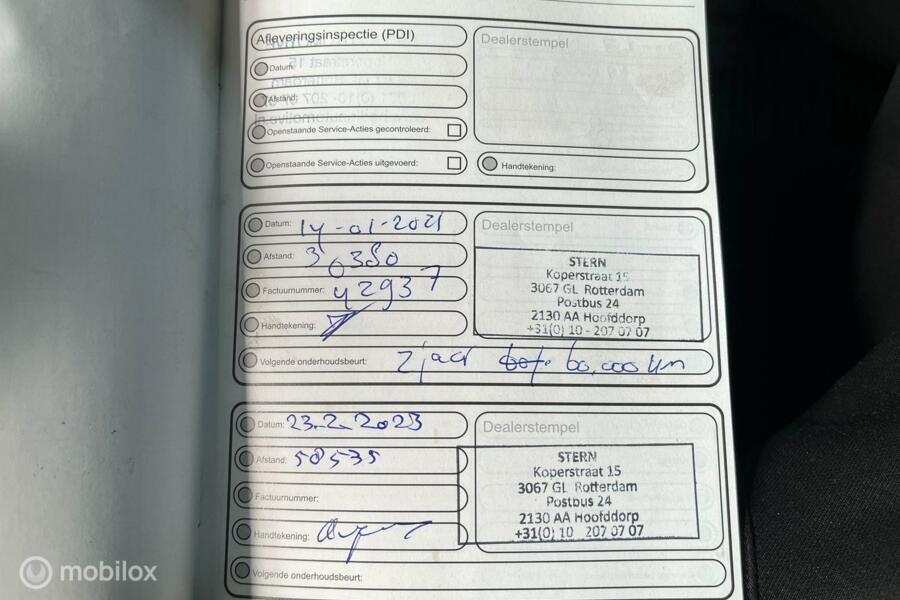 Afleveringsinspectie (PDI)
Dealerstempel
Datum:
Afstand:
Openstaande Service-Acties gecontroleerd:
Openstaande Service-Acties uitgevoerd:
Handtekening:
Datum: 14-01-2021
Dealerstempel
Afstand: 30380
Factuurnummer: 42937
Handtekening:
STERN
Koperstraat 15
3067 GL Rotterdam
Postbus 24
2130 AA Hoofddorp
+31(0) 10 - 207 07 07
Volgende onderhoudsbeurt: 2 jaar of 60,000 km
Datum: 23-2-2023
Dealerstempel
Afstand: 58535
Factuurnummer:
Handtekening:
STERN
Koperstraat 15
3067 GL Rotterdam
Postbus 24
2130 AA Hoofddorp
+31(0) 10 207 07 07
Volgende onderhoudsbeurt:
mobilox